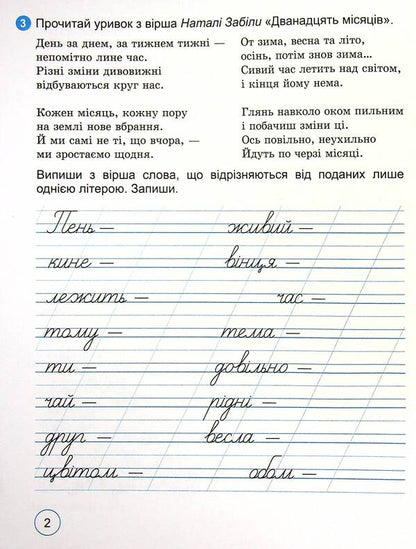 3 Прочитай уривок з вірша Наталі Забіли «Дванадцять місяців».
День за днем, за тижнем тижні —
непомітно лине час.
Різні зміни дивовижні
відбуваються круг нас.
От зима, весна та літо,
осінь, потім знов зима...
Сивий час летить над світом,
і кінця йому нема.
Кожен місяць, кожну пору
на землі нове вбрання.
Й ми самі не ті, що вчора, —
ми зростаємо щодня.
Глянь навколо оком пильним
і побачиш зміни ці.
Ось повільно, неухильно
Йдуть по черзі місяці.
Випиши з вірша слова, що відрізняються від поданих лише
однією літерою. Запиши.
Пень — живий —
кине — вінця —
лежить — час —
тому — тема —
ти — довільно —
чай — рідні —
друг — весла —
цвітом — обом —
2